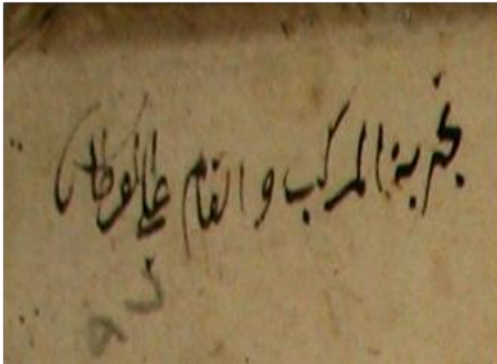 تجربة المركب والقلم علي القرطاس